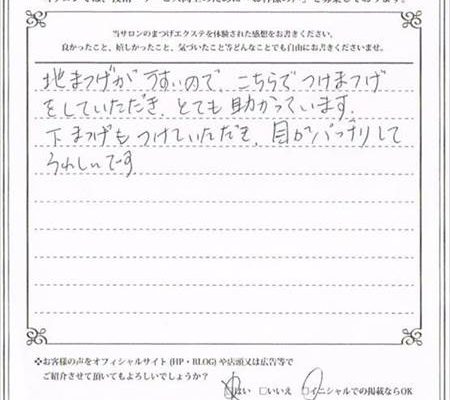 当サロンのまつげエクステを体験された感想をお書きください。
良かったこと、嬉しかったこと、気づいたこと等どんなことでも自由にお書きくださいませ。
地まつげが うすいので、こちらで つけまつげ
をしていただき、とても 助かっています。
下まつげも つけていただき、目がパッチリして
うれしいです。
❖お客様の声をオフィシャルサイト(HP・BLOG)や店頭又は広告等で
ご紹介させて頂いてもよろしいでしょうか?
□はい □いいえ □イニシャルでの掲載ならOK